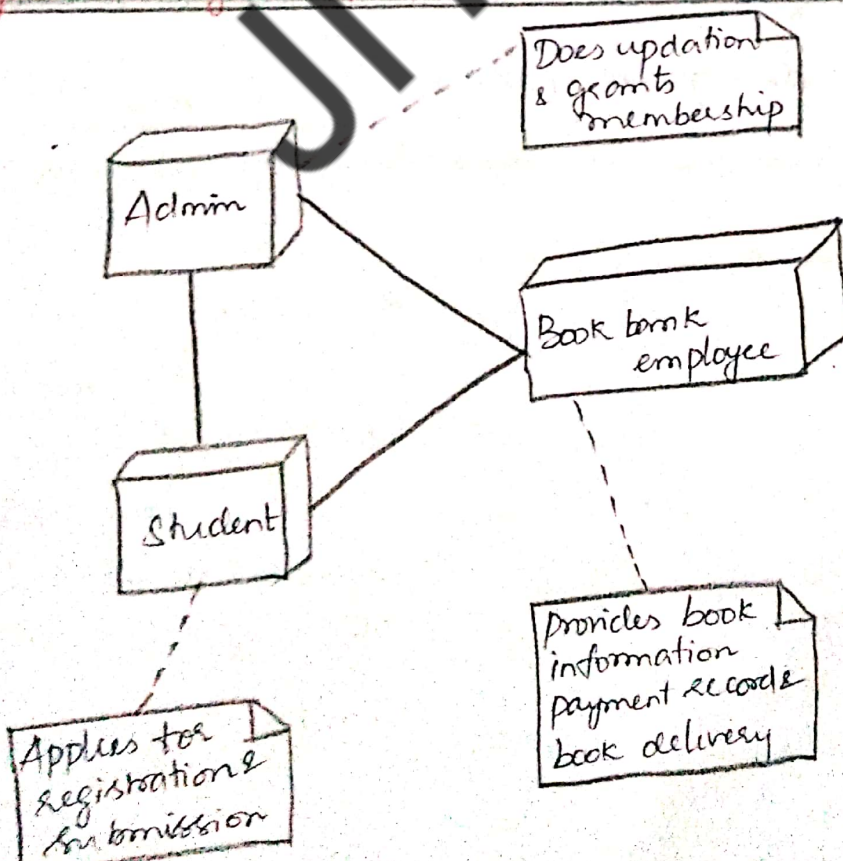 Does updation
& grants
membership
Admin
Book bank
employee
Student
Provides book
information
payment record &
book delivery
Applies for
registration &
submission